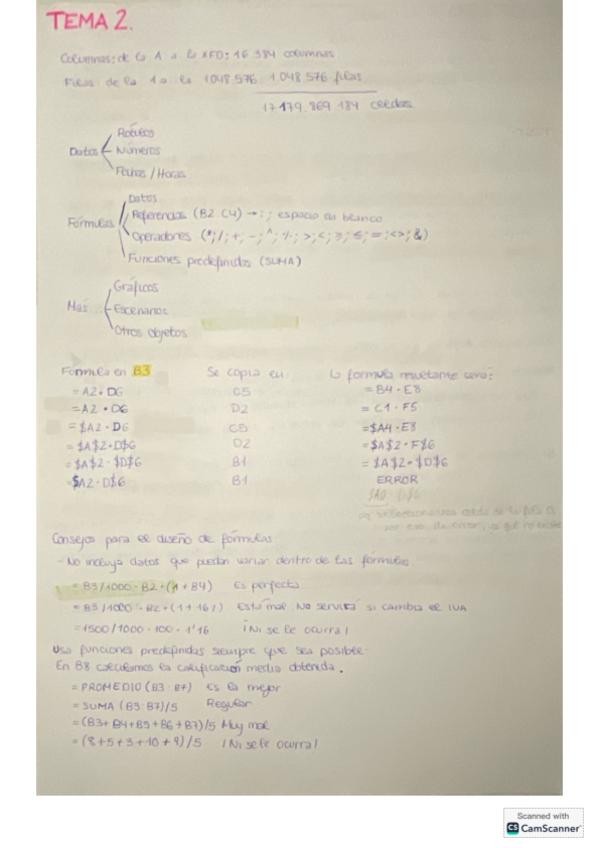 TEMA 2.
Columnas: de la A a la XFD; 16 384 columnas
Filas de la 1 a la 1048.576 1 048 576 filas
17 179 869 184 celdas
Rótulos
Datos Números
Fechas / Horas
Datos
Fórmulas Referencias (B2 C4) → : ; espacio en blanco
Operadores (*; /; +; -; ^; %; >; <; ≥; ≤; =; <>; &)
Funciones predefinidas (SUMA)
Gráficos
Más Escenarios
Otros objetos
Fórmula en B3 Se copia en: La fórmula resultante será:
= A2 · D6 C5 = B4 · E8
= A2 · D6 D2 = C1 · F5
= $A2 · D6 C5 = $A4 · E8
= $A$2 · D$6 D2 = $A$2 · F$6
= $A$2 · $D$6 B1 = $A$2 · $D$6
= $A2 · D$6 B1 ERROR
$A0 D$6
por eso da error, ya que no existe
Consejos para el diseño de fórmulas
- No incluya datos que puedan variar dentro de las fórmulas.
= B3/1000 · B2 · (1 + B4) Es perfecta
= B3/1000 · B2 · (1 + 16%) Está mal No servirá si cambia el IVA
= 1500/1000 · 100 · 1'16 ¡Ni se le ocurra!
Use funciones predefinidas siempre que sea posible
En B8 calculamos la calificación media obtenida.
= PROMEDIO (B3:B7) Es la mejor
= SUMA (B3:B7)/5 Regular
= (B3+B4+B5+B6+B7)/5 Muy mal
= (8+5+3+10+9)/5 ¡Ni se le ocurra!
Scanned with
CS CamScanner